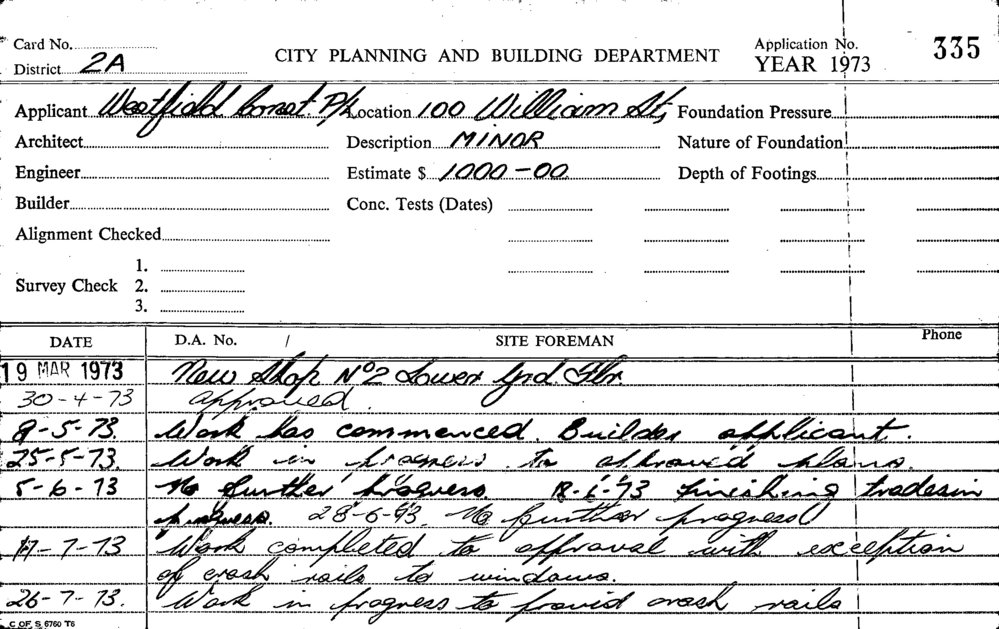 Card No.
District 2A
CITY PLANNING AND BUILDING DEPARTMENT
Application No. 335
YEAR 1973
Applicant Westfield Const. P/L Location 100 William St, Foundation Pressure
Architect Description MINOR Nature of Foundation
Engineer Estimate $ 1000-00 Depth of Footings
Builder Conc. Tests (Dates)
Alignment Checked
1.
Survey Check 2.
3.
DATE D.A. No. / SITE FOREMAN Phone
19 MAR 1973 New Shop No2 Lower Grd. Flr.
30-4-73 approved.
8-5-73. Work has commenced. Builder applicant.
25-5-73. Work in progress to approved plans.
5-6-73 No further progress. 18-6-73 finishing trades in
progress. 28-6-73. No further progress
17-7-73 Work completed to approval with exception
of crash rails to windows.
26-7-73. Work in progress to provid crash rails
C OF S 6760 T6